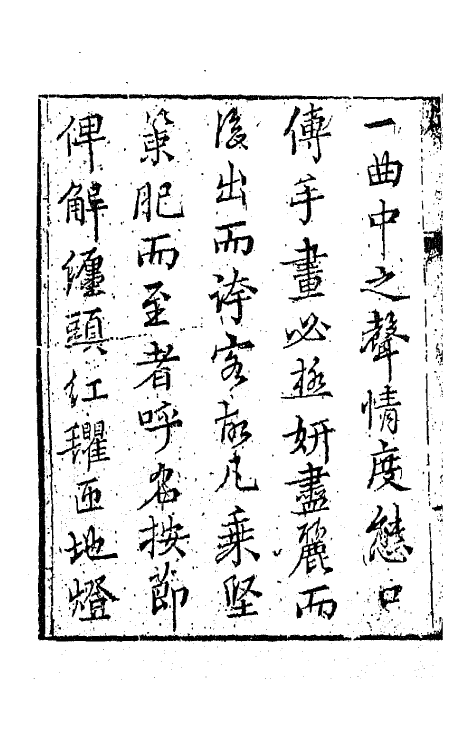 一曲中之聲情度態口
傳手畫必極妍盡麗而
後出而誇客故凡乗堅
策肥而至者呼名按節
俾解纏頭紅氍匝地燈